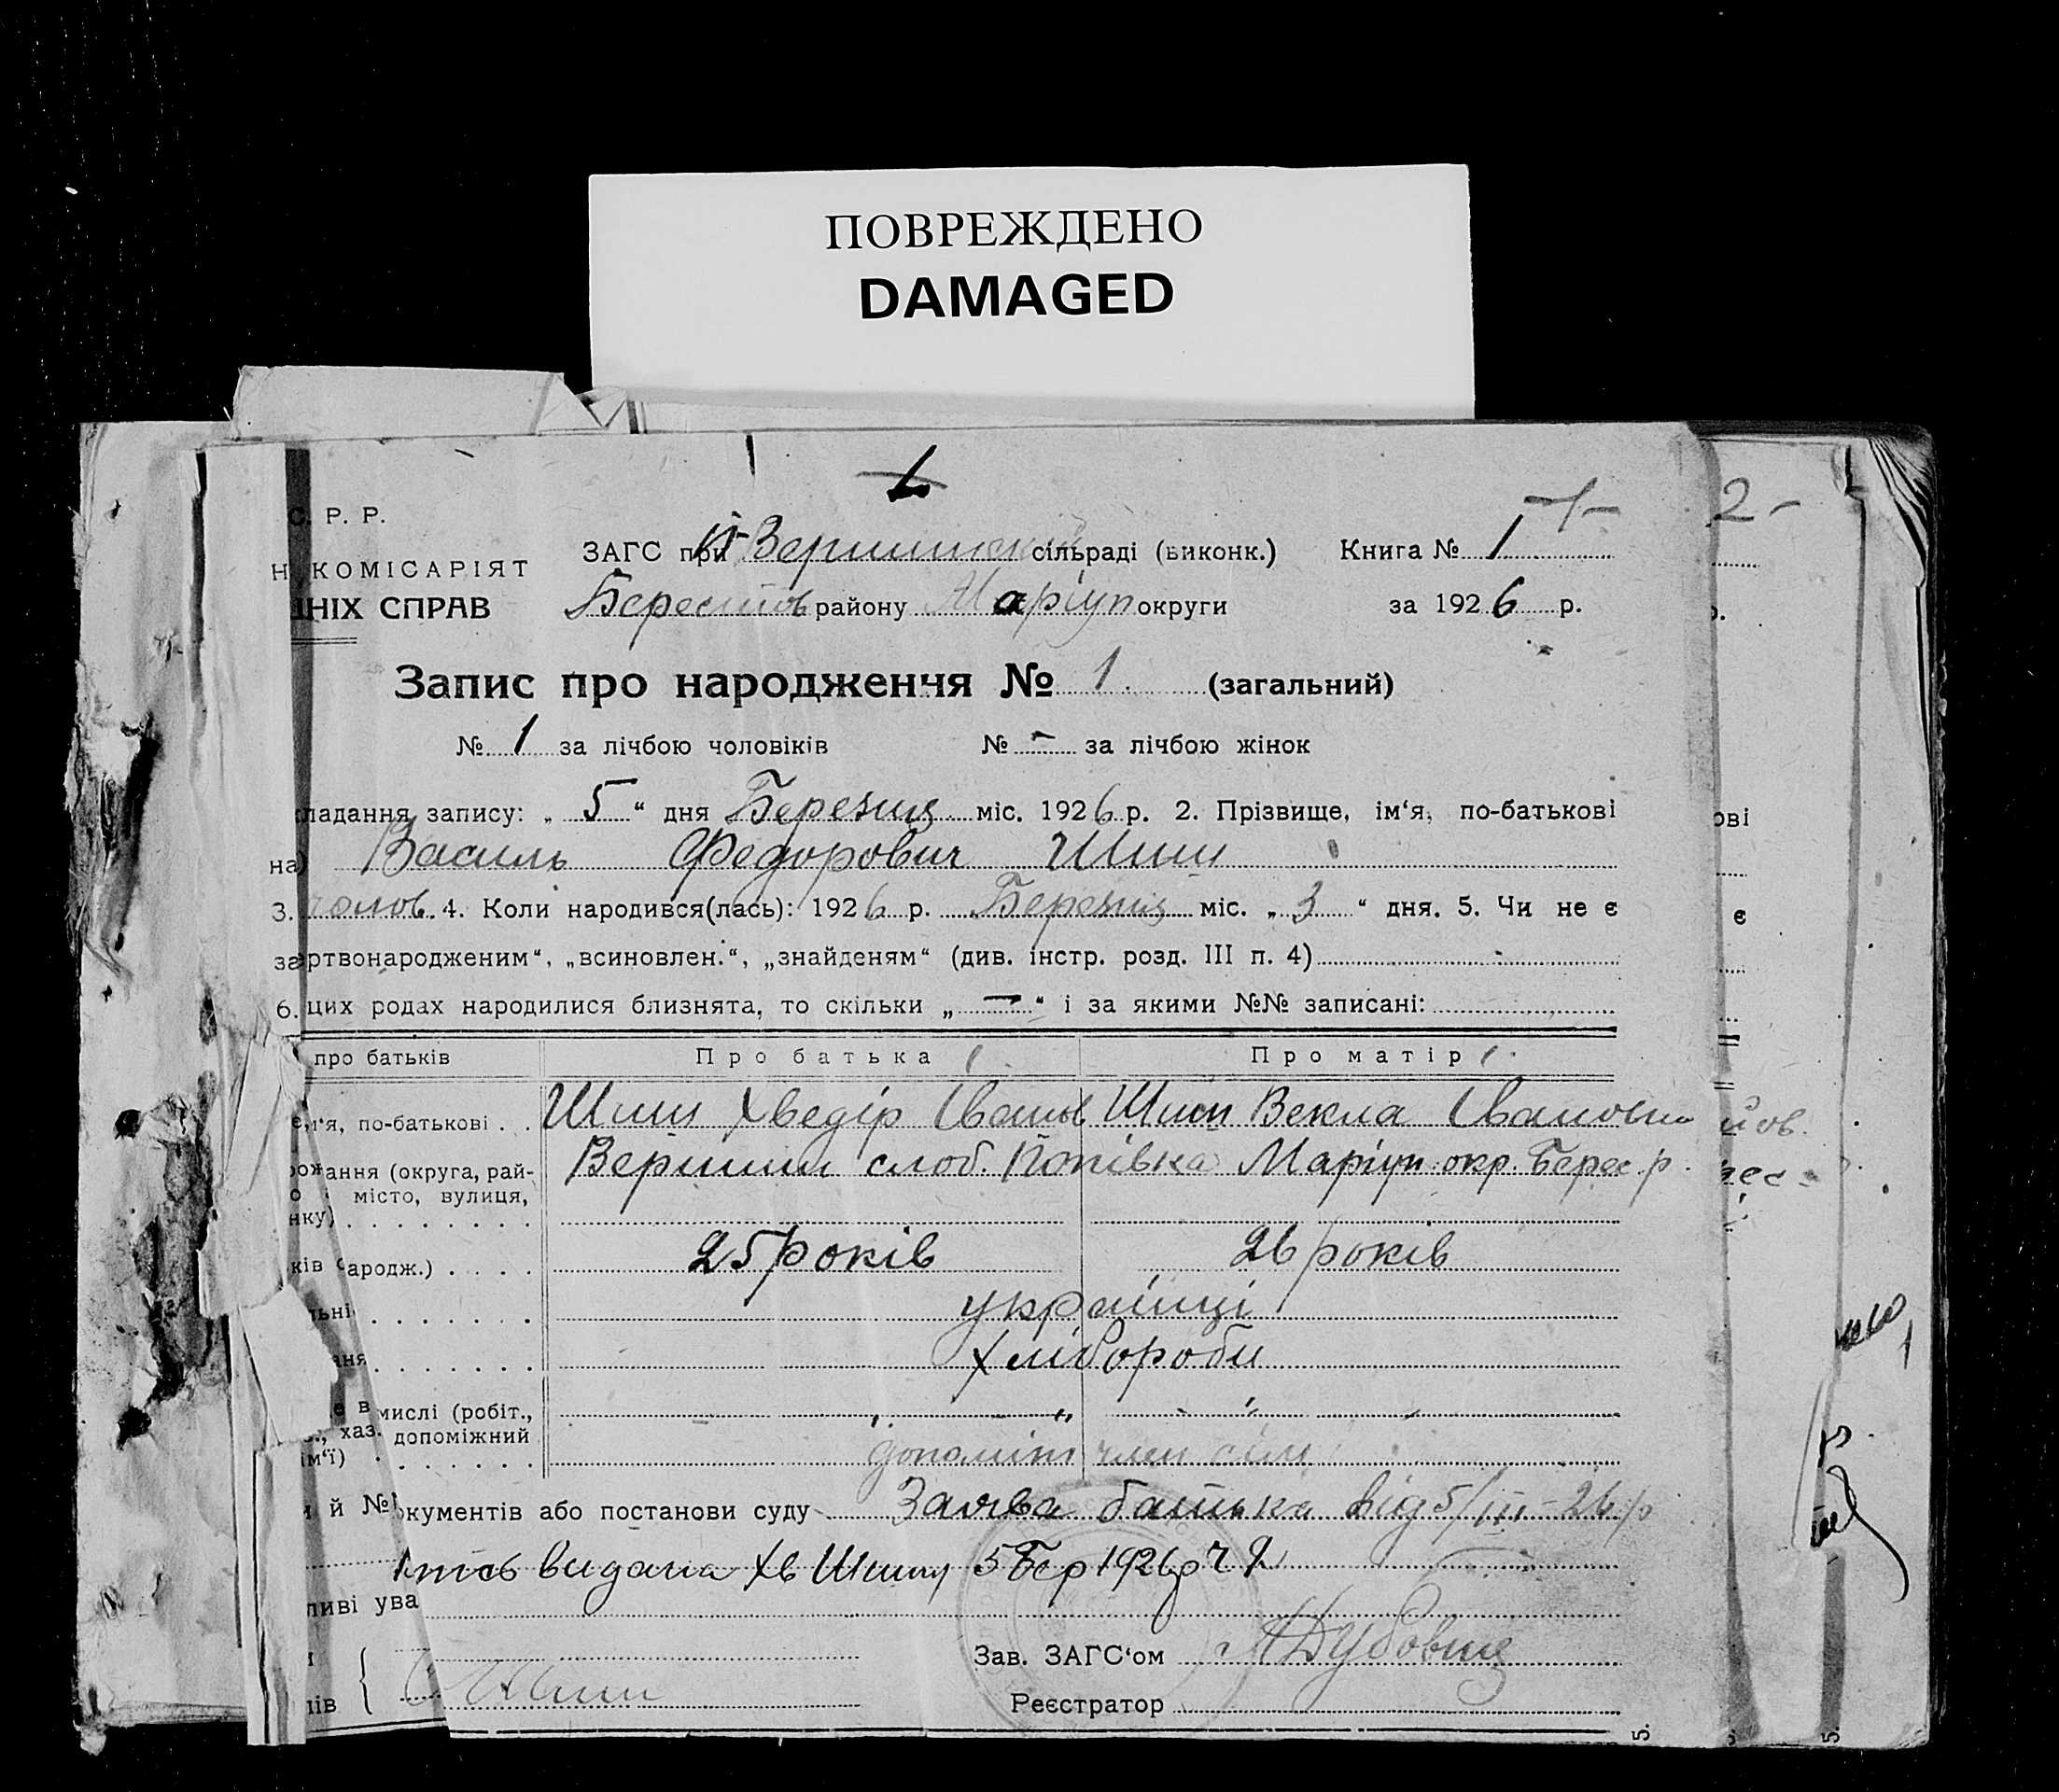 ПОВРЕЖДЕНО
DAMAGED
С. Р. Р.
2 -
-1-
ЗАГС при Вершинській сільраді (виконк.) Книга № 1
Н КОМІСАРІЯТ
ШНІХ СПРАВ
Берестов району Маріуп округи за 1926 р.
Запис про народження № 1. (загальний)
№ 1 за лічбою чоловіків № - за лічбою жінок
кладання запису: „ 5 “ дня Березня міс. 1926 р. 2. Прізвище, ім‘я, по-батькові
на) Василь Федорович Шиш
3. чолов. 4. Коли народився(лась): 1926 р. Березня міс. „ 3 “ дня. 5. Чи не є
ртвонародженим“, „всиновлен.“, „знайденям“ (див. інстр. розд. III п. 4)
6. цих родах народилися близнята, то скільки „ — “ і за якими №№ записані:
про батьків Про батька Про матір
м‘я, по-батькові . . Шиш Хведір Іванов Шиш Векла Івановна
ання (округа, рай- Вершини слоб. Попівка Маріуп. окр. Берес. р.
місто, вулиця,
нку)
ків народж.) . . . . 25 років 26 років
льні . . . . . . українці
ня . . . . . . Хлібороби
в мислі (робіт., „ „
хаз. допоміжний
ім‘ї) допоміж член сім
й № окументів або постанови суду Заява батька від 5/III-26 р
видана Хв Шишу 5 Бер 1926 р ч 1
ливі ува
Зав. ЗАГС‘ом Дубовик
Шиш
ів Реєстратор